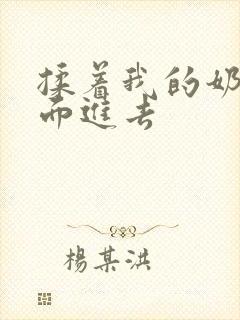 揉着我的奶
而進去
楊某洪